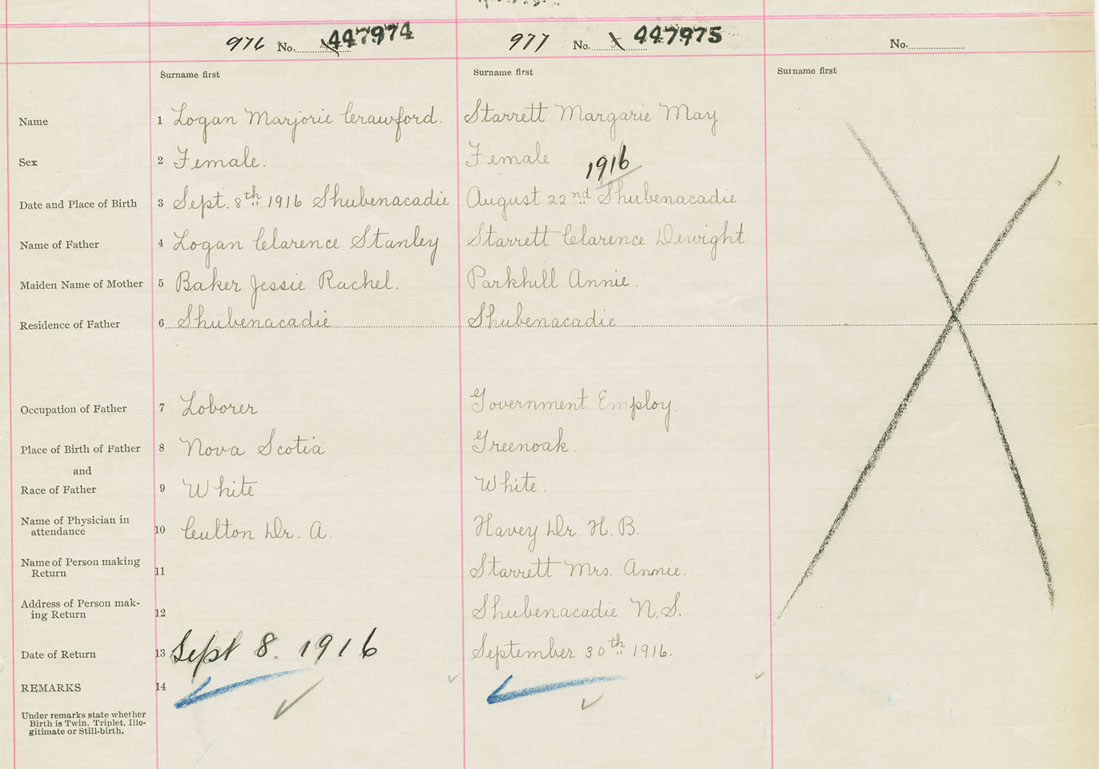 976 No. 447974
977 No. 447975
No.
Surname first
Surname first
Surname first
Name 1 Logan Marjorie Crawford. Starrett Margarie May
Sex 2 Female. Female
1916
Date and Place of Birth 3 Sept. 8th 1916 Shubenacadie August 22nd Shubenacadie
Name of Father 4 Logan Clarence Stanley Starrett Clarence Dewight
Maiden Name of Mother 5 Baker Jessie Rachel. Parkhill Annie.
Residence of Father 6 Shubenacadie Shubenacadie
Occupation of Father 7 Loborer Government Employ.
Place of Birth of Father 8 Nova Scotia Greenoak.
and
Race of Father 9 White White.
Name of Physician in
attendance 10 Culton Dr. A. Havey Dr. H. B.
Name of Person making
Return 11 Starrett Mrs. Annie.
Address of Person mak-
ing Return 12 Shubenacadie N.S.
Date of Return 13 Sept 8. 1916 September 30th 1916.
REMARKS 14
Under remarks state whether
Birth is Twin, Triplet, Ille-
gitimate or Still-birth.